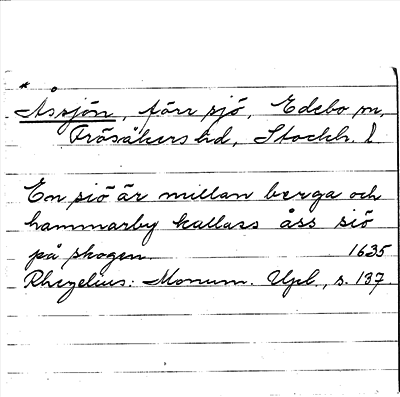 *
Åssjön, förr sjö, Edebo sn,
Frösåkers hd, Stockh. l.
En siö är millan berga och
hammarby kallass åss siö
på skogen. 1635
Rhezelius: Monum. Upl., s. 137.